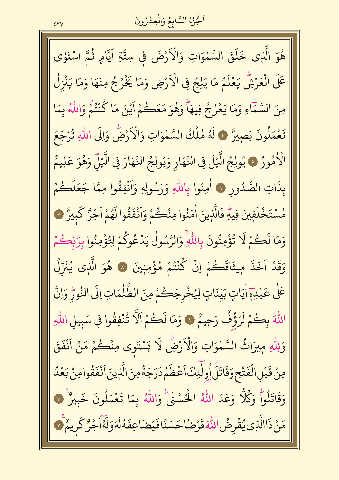 اَلْجُزْءُ السَّابِعُ وَالْعِشْرُونَ
هُوَ الَّذِى خَلَقَ السَّمٰوَاتِ وَالْاَرْضَ فِى سِتَّةِ اَيَّامٍ ثُمَّ اسْتَوٰى
عَلَى الْعَرْشِۜ يَعْلَمُ مَا يَلِجُ فِى الْاَرْضِ وَمَا يَخْرُجُ مِنْهَا وَمَا يَنْزِلُ
مِنَ السَّمَٓاءِ وَمَا يَعْرُجُ فِيهَاۜ وَهُوَ مَعَكُمْ اَيْنَ مَا كُنْتُمْۜ وَاللّٰهُ بِمَا
تَعْمَلُونَ بَصِيرٌۜ لَهُ مُلْكُ السَّمٰوَاتِ وَالْاَرْضِۜ وَاِلَى اللّٰهِ تُرْجَعُ
الْاُمُورُ يُولِجُ الَّيْلَ فِى النَّهَارِ وَيُولِجُ النَّهَارَ فِى الَّيْلِۜ وَهُوَ عَلِيمٌ
بِذَاتِ الصُّدُورِ اٰمِنُوا بِاللّٰهِ وَرَسُولِهِ وَاَنْفِقُوا مِمَّا جَعَلَكُمْ
مُسْتَخْلَفِينَ فِيهِۜ فَالَّذِينَ اٰمَنُوا مِنْكُمْ وَاَنْفَقُوا لَهُمْ اَجْرٌ كَبِيرٌ
وَمَا لَكُمْ لَا تُؤْمِنُونَ بِاللّٰهِۚ وَالرَّسُولُ يَدْعُوكُمْ لِتُؤْمِنُوا بِرَبِّكُمْ
وَقَدْ اَخَذَ مِيثَاقَكُمْ اِنْ كُنْتُمْ مُؤْمِنِينَ هُوَ الَّذِى يُنَزِّلُ
عَلٰى عَبْدِهِٓ اٰيَاتٍ بَيِّنَاتٍ لِيُخْرِجَكُمْ مِنَ الظُّلُمَاتِ اِلَى النُّورِۜ وَاِنَّ
اللّٰهَ بِكُمْ لَرَؤُ۫فٌ رَحِيمٌ وَمَا لَكُمْ اَلَّا تُنْفِقُوا فِى سَبِيلِ اللّٰهِ
وَلِلّٰهِ مِيرَاثُ السَّمٰوَاتِ وَالْاَرْضِۜ لَا يَسْتَوِى مِنْكُمْ مَنْ اَنْفَقَ
مِنْ قَبْلِ الْفَتْحِ وَقَاتَلَۜ اُو۬لٰٓئِكَ اَعْظَمُ دَرَجَةً مِنَ الَّذِينَ اَنْفَقُوا مِنْ بَعْدُ
وَقَاتَلُواۜ وَكُلًّا وَعَدَ اللّٰهُ الْحُسْنٰىۜ وَاللّٰهُ بِمَا تَعْمَلُونَ خَبِيرٌ
مَنْ ذَا الَّذِى يُقْرِضُ اللّٰهَ قَرْضًا حَسَنًا فَيُضَاعِفَهُ لَهُ وَلَهُٓ اَجْرٌ كَرِيمٌ